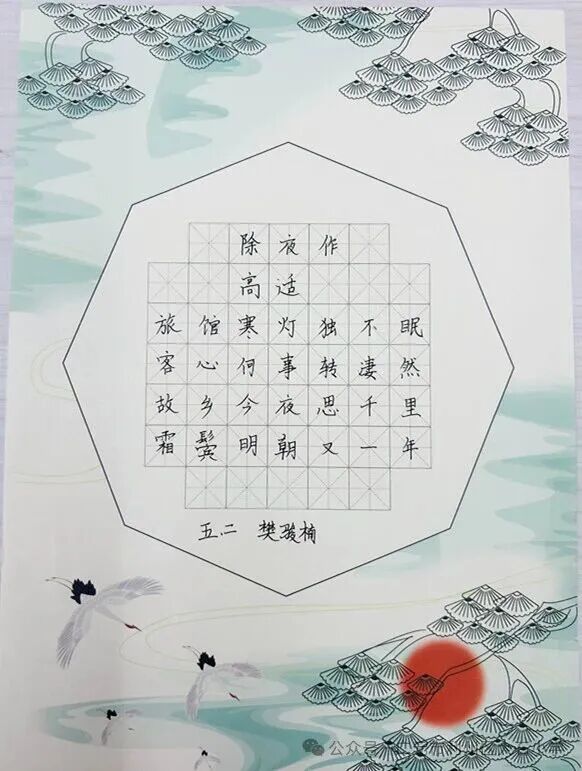 除夜作
高适
旅馆寒灯独不眠
客心何事转凄然
故乡今夜思千里
霜鬓明朝又一年
五.二 樊骏楠
公众号